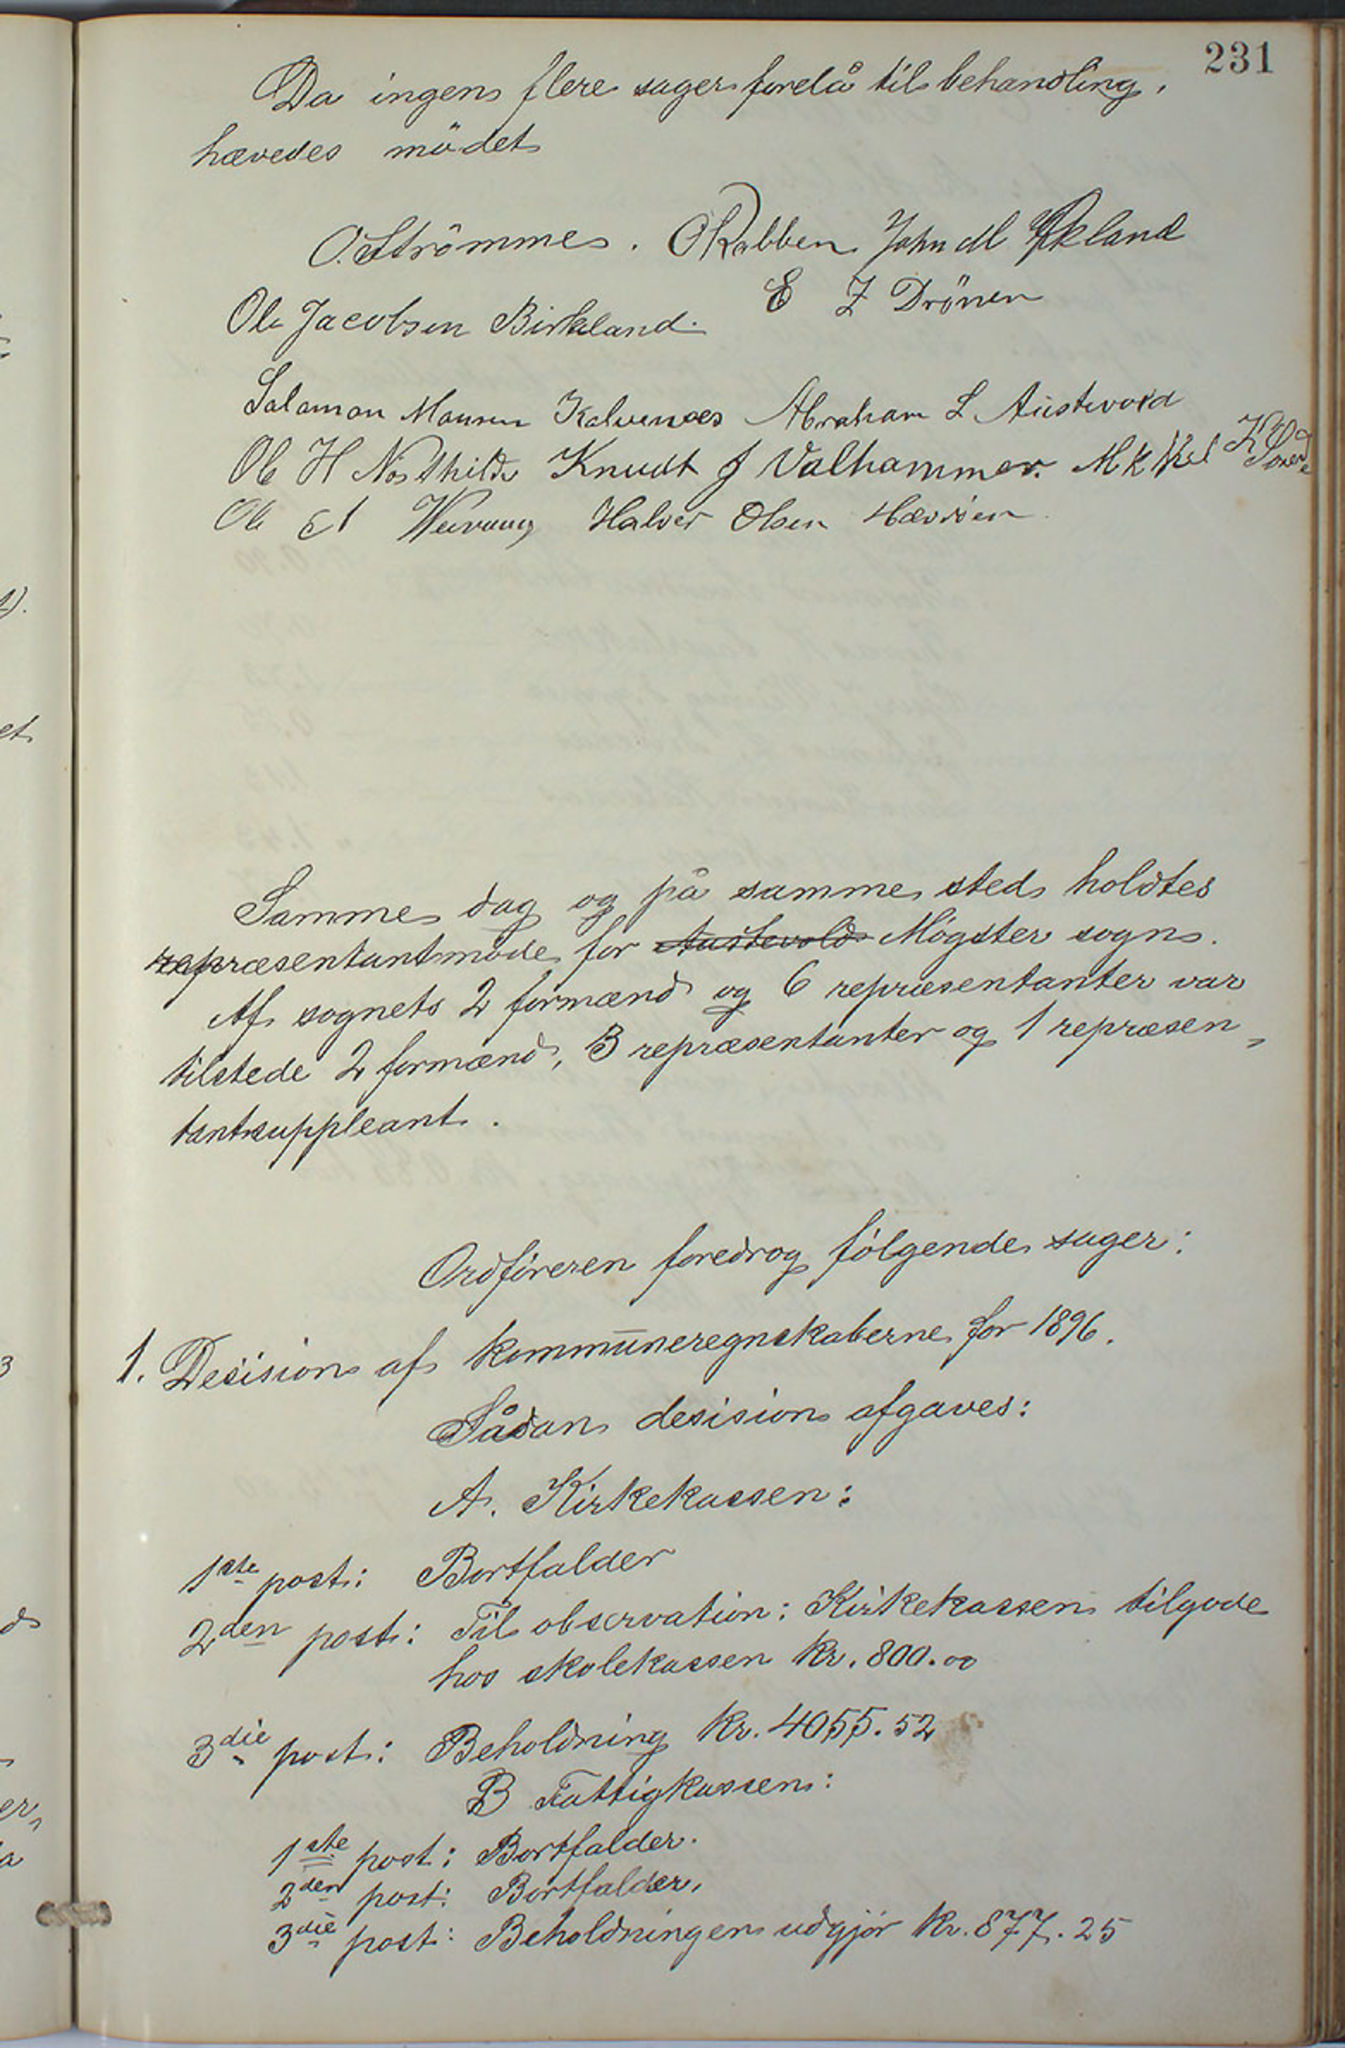 231
Da ingen flere sager forelå til behandling,
hævedes mödet
O. Strömmes. O Rabben John M Økland
E Z Drönen
Ole Jacobsen Birkeland.
Salamon Mons Kalvenæs Abraham L Austevold
Ole H Nosthilde Knudt J Valhammer. M K
Ole Halver Olsen Hævröen
Samme dag og på samme sted holdtes
repræsentantmøde for Austevold Møgster sogn.
Af sognets 2 formænd og 6 repræsentanter var
tilstede 2 formænd, 3 repræsentanter og 1 repræsen-
tantsuppleant.
Ordføreren foredrog følgende sager:
1. Desision af kommuneregnskaberne for 1896.
Sådan desision afgaves:
A. Kirkekassen:
1ste post: Bortfalder
2den post: Til observation: Kirkekassen tilgode
hos skolekassen kr. 800.00
3die post: Beholdning kr. 4055.52
B Fattigkassen:
1ste post: Bortfalder.
2den post: Bortfalder,
3die post: Beholdningen udgjør kr. 877.25